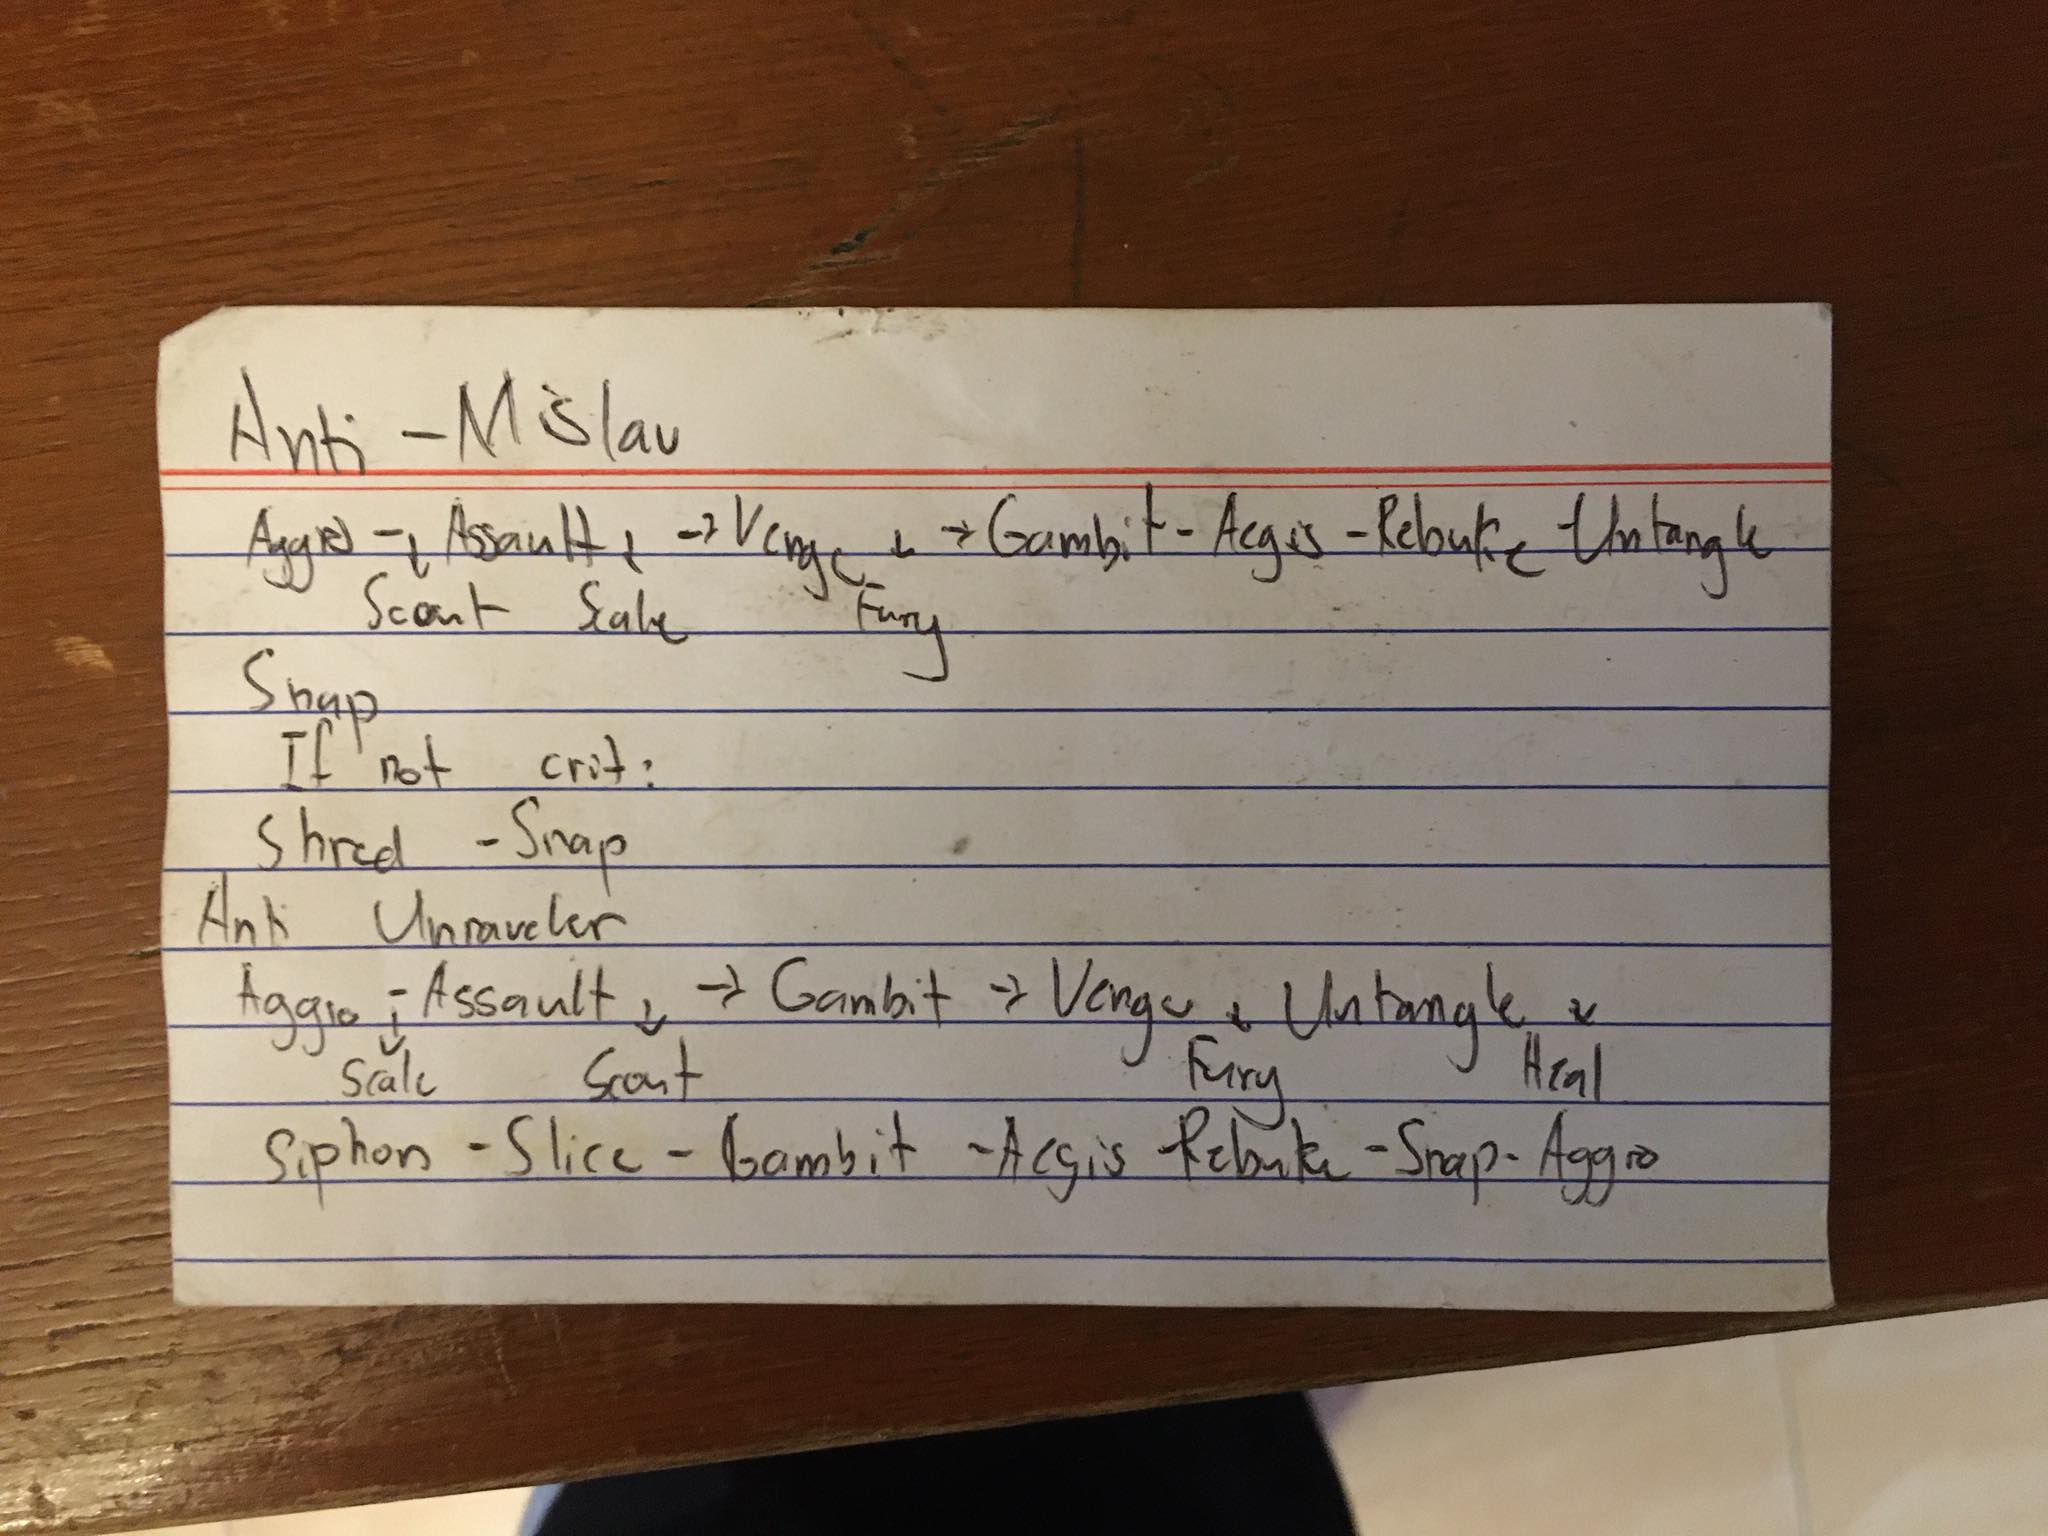 Anti - Mislav
Aggro -↓ Assault ↓ → Venge ↓ → Gambit - Aegis - Rebuke - Untangle
Scout Scale Fury
Snap
If not crit:
Shred - Snap
Anti Unraveler
Aggro - Assault ↓ → Gambit → Venge ↓ Untangle ↓
Scale Scout Fury Heal
Siphon - Slice - Gambit - Aegis - Rebuke - Snap - Aggro